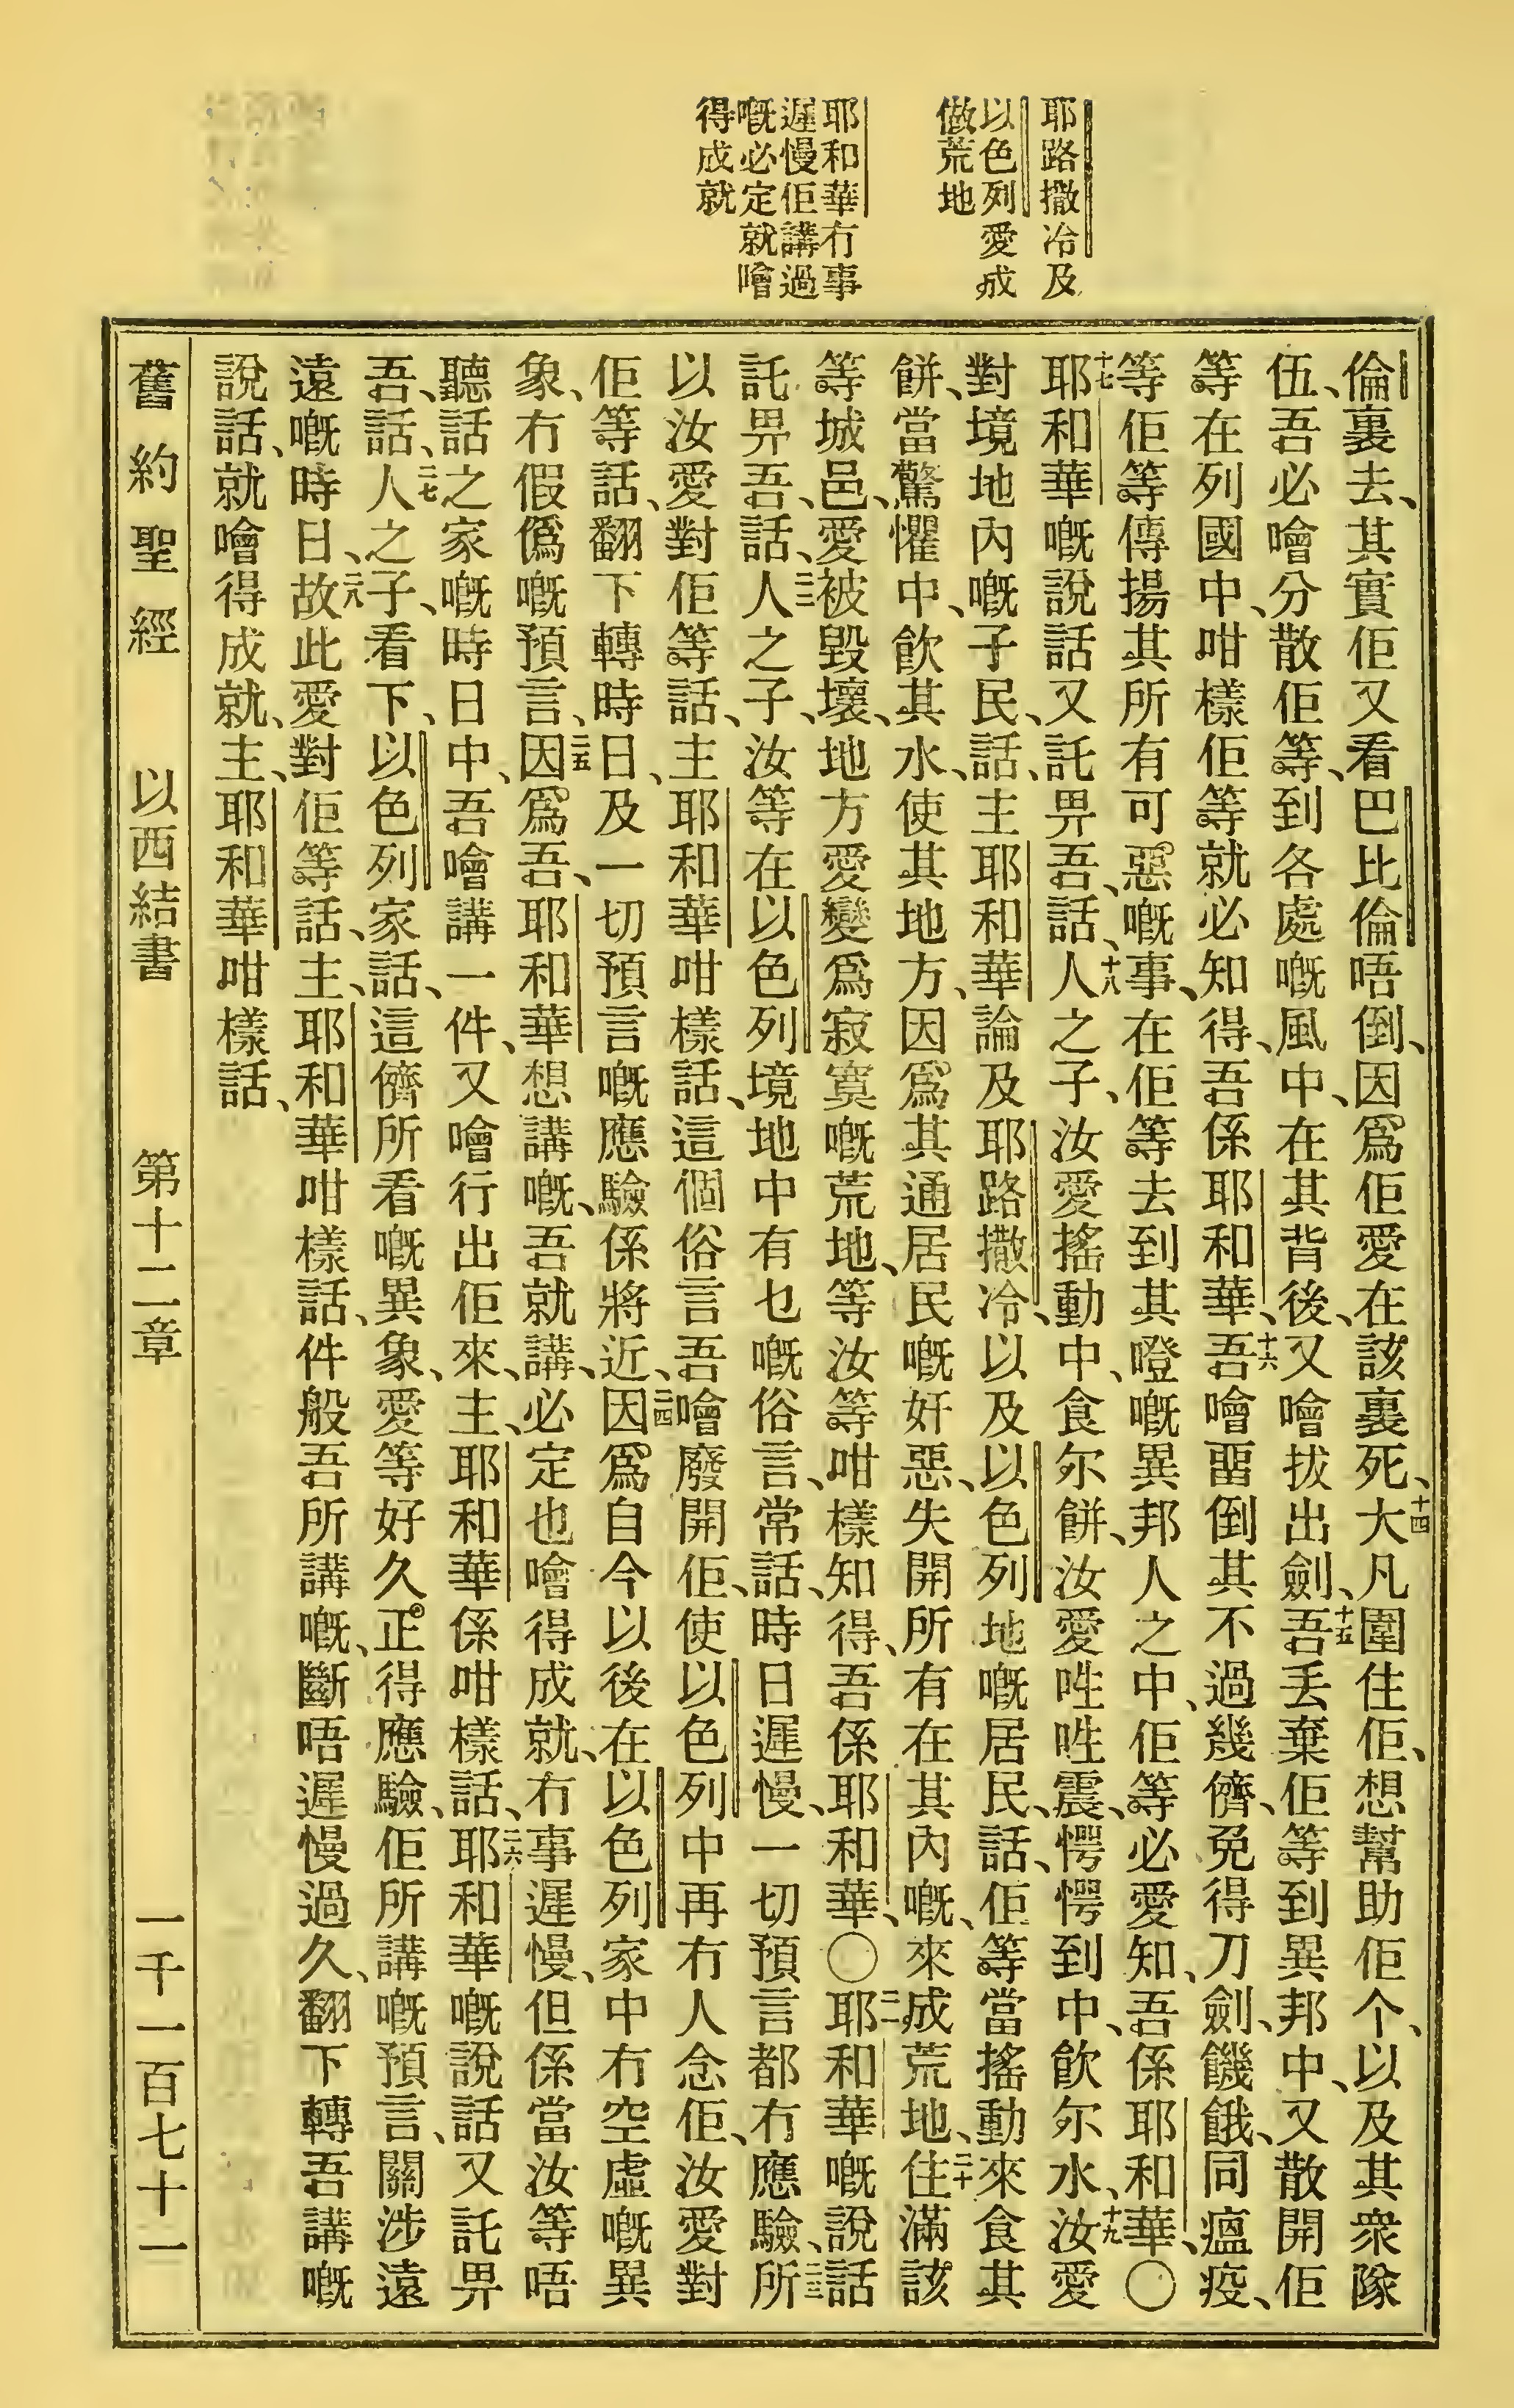 耶路撒冷及
以色列愛成
做荒地
耶和華冇事
遲慢佢講過
嘅必定就噲
得成就
倫裏去、其實佢又看巴比倫唔倒、因爲佢愛在該裏死、十四大凡圍住佢、想幫助佢个、以及其衆隊
伍、吾必噲分散佢等、到各處嘅風中、在其背後、又噲拔出劍、十五吾丢棄佢等到異邦中、又散開佢
等在列國中、咁樣佢等就必知得、吾係耶和華、十六吾噲畱倒其不過幾儕、免得刀劍、饑餓、同瘟疫、
等佢等傳揚其所有可惡嘅事、在佢等去到其噔嘅異邦人之中、佢等必愛知、吾係耶和華、〇
十七耶和華嘅說話又託畀吾、話、十八人之子、汝愛搖動中、食尔餅、汝愛㕽㕽震、愕愕到中、飲尔水、十九汝愛
對境地內嘅子民、話、主耶和華論及耶路撒冷、以及以色列地嘅居民、話、佢等當搖動來食其
餅、當驚懼中、飲其水、使其地方、因爲其通居民嘅奸惡、失開所有在其內嘅、來成荒地、二十住滿該
等城邑、愛被毀壞、地方愛變爲寂寞嘅荒地、等汝等咁樣知得、吾係耶和華、〇二一耶和華嘅說話
託畀吾、話、二二人之子、汝等在以色列境地中有乜嘅俗言、常話、時日遲慢、一切預言都冇應驗、二三所
以汝愛對佢等話、主耶和華咁樣話、這個俗言吾噲廢開佢、使以色列中再冇人念佢、汝愛對
佢等話、翻下轉時日、及一切預言嘅應驗係將近、二四因爲自今以後在以色列家中冇空虛嘅異
象、冇假僞嘅預言、二五因爲吾、耶和華想講嘅、吾就講、必定也噲得成就、冇事遲慢、但係當汝等唔
聽話之家嘅時日中、吾噲講一件、又噲行出佢來、主、耶和華係咁樣話、二六耶和華嘅說話又託畀
吾、話、二七人之子、看下、以色列家話、這儕所看嘅異象、愛等好久正得應驗、佢所講嘅預言、關涉遠
遠嘅時日、二八故此愛對佢等話、主、耶和華咁樣話、件般吾所講嘅、斷唔遲慢過久、翻下轉吾講嘅
說話、就噲得成就、主、耶和華咁樣話、
舊約聖經 以西結書 第十二章 一千一百七十一